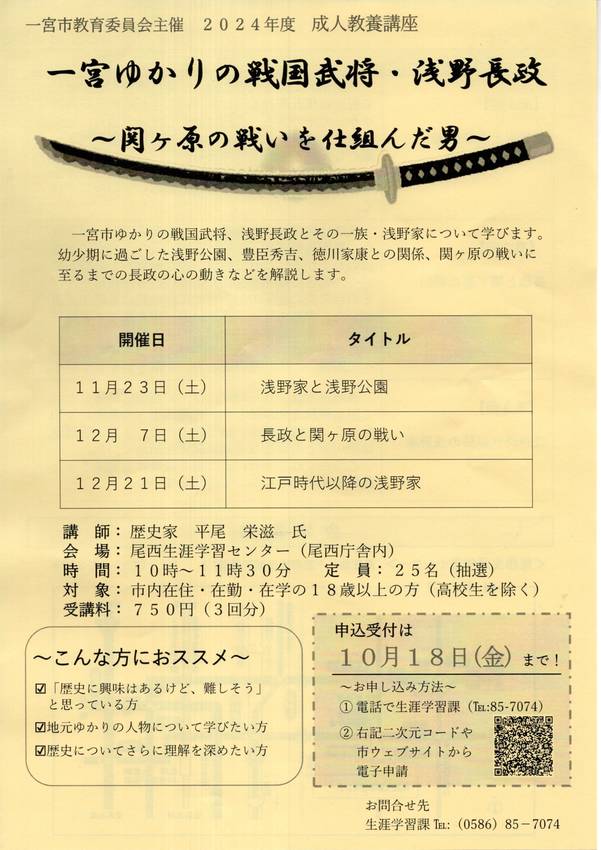 一宮市教育委員会主催　２０２４年度　成人教養講座
一宮ゆかりの戦国武将・浅野長政
～関ヶ原の戦いを仕組んだ男～
一宮市ゆかりの戦国武将、浅野長政とその一族・浅野家について学びます。
幼少期に過ごした浅野公園、豊臣秀吉、徳川家康との関係、関ヶ原の戦いに
至るまでの長政の心の動きなどを解説します。
開催日　タイトル
１１月２３日（土）　浅野家と浅野公園
１２月　７日（土）　長政と関ヶ原の戦い
１２月２１日（土）　江戸時代以降の浅野家
講　師：歴史家　平尾　栄滋　氏
会　場：尾西生涯学習センター（尾西庁舎内）
時　間：１０時～１１時３０分　　定　員：２５名（抽選）
対　象：市内在住・在勤・在学の１８歳以上の方（高校生を除く）
受講料：７５０円（３回分）
～こんな方におススメ～
☑「歴史に興味はあるけど、難しそう」
と思っている方
☑地元ゆかりの人物について学びたい方
☑歴史についてさらに理解を深めたい方
申込受付は
１０月１８日(金) まで！
～お申し込み方法～
① 電話で生涯学習課（℡:85-7074）
② 右記二次元コードや
市ウェブサイトから
電子申請
お問合せ先
生涯学習課 ℡:（0586）85－7074